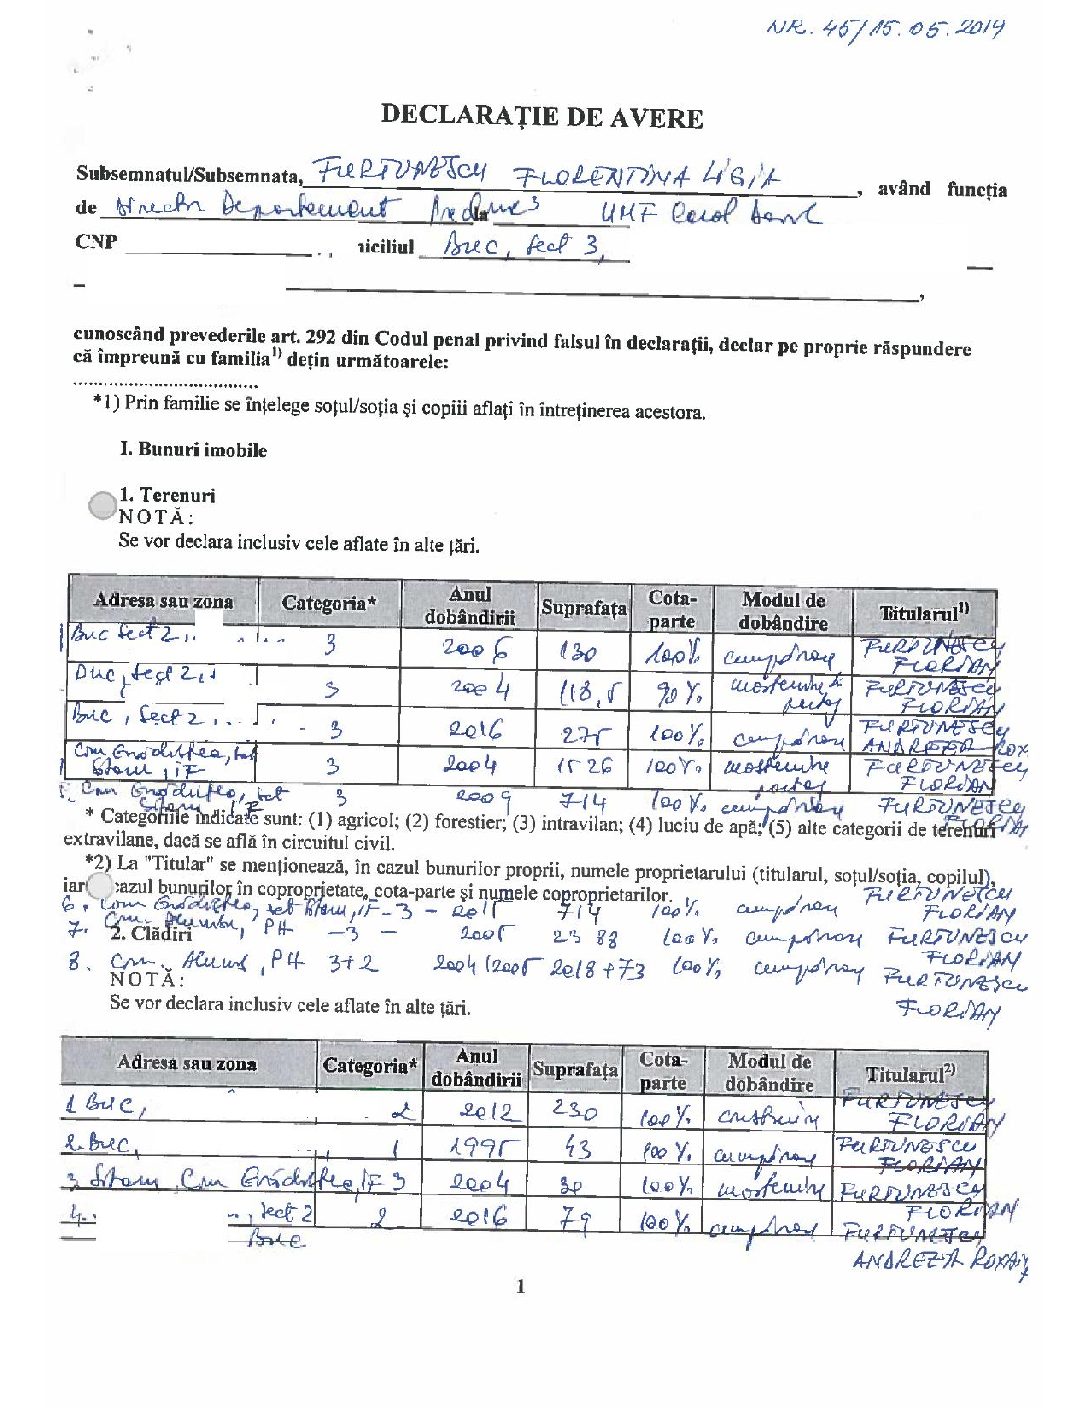 NR. 45/15.05.2019
DECLARAȚIE DE AVERE
Subsemnatul/Subsemnata, FURTUNESCU FLORENTINA LIGIA, având funcția
de Director Departament UMF Carol
CNP iciliul Buc, Sect 3,
cunoscând prevederile art. 292 din Codul penal privind falsul în declarații, declar pe proprie răspundere
că împreună cu familia1) dețin următoarele:
*1) Prin familie se înțelege soțul/soția și copiii aflați în întreținerea acestora.
I. Bunuri imobile
1. Terenuri
NOTĂ:
Se vor declara inclusiv cele aflate în alte țări.
Adresa sau zona Categoria* Anul dobândirii Suprafața Cota-parte Modul de dobândire Titularul1)
Buc Sect 2, 3 2006 130 100% cumpărare FURTUNESCU FLORIAN
Buc, Sect 2, 3 2004 118,5 90% FURTUNESCU FLORIAN
Buc, Sect 2, 3 2016 275 100% cumpărare FURTUNESCU ANDREEA ROX
Com Grădiștea, sat Sitaru, IF 3 2004 1526 100% moștenire FURTUNESCU FLORIAN
5. Com Grădiștea, sat Sitaru IF 3 2009 714 100% cumpărare FURTUNESCU FLORIAN
* Categoriile indicate sunt: (1) agricol; (2) forestier; (3) intravilan; (4) luciu de apă; (5) alte categorii de terenuri
extravilane, dacă se află în circuitul civil.
*2) La "Titular" se menționează, în cazul bunurilor proprii, numele proprietarului (titularul, soțul/soția, copilul),
iar cazul bunurilor în coproprietate, cota-parte și numele coproprietarilor.
6. Com Grădiștea, sat Sitaru, IF - 3 - 2015 714 100% cumpărare FURTUNESCU FLORIAN
7. Com. , PH - 3 - 2005 2388 100% cumpărare FURTUNESCU FLORIAN
2. Clădiri
8. Com. , PH 3+2 2004/2005 2018+73 100% cumpărare FURTUNESCU FLORIAN
NOTĂ:
Se vor declara inclusiv cele aflate în alte țări.
Adresa sau zona Categoria* Anul dobândirii Suprafața Cota-parte Modul de dobândire Titularul2)
1 Buc, 2 2012 230 100% construire FURTUNESCU FLORIAN
2. Buc, 1 1995 43 100% cumpărare FURTUNESCU FLORIAN
3 Sitaru, Com Grădiștea, IF 3 2004 30 100% moștenire FURTUNESCU FLORIAN
4. , Sect 2 Buc 2 2016 79 100% cumpărare FURTUNESCU ANDREEA ROXANA
1